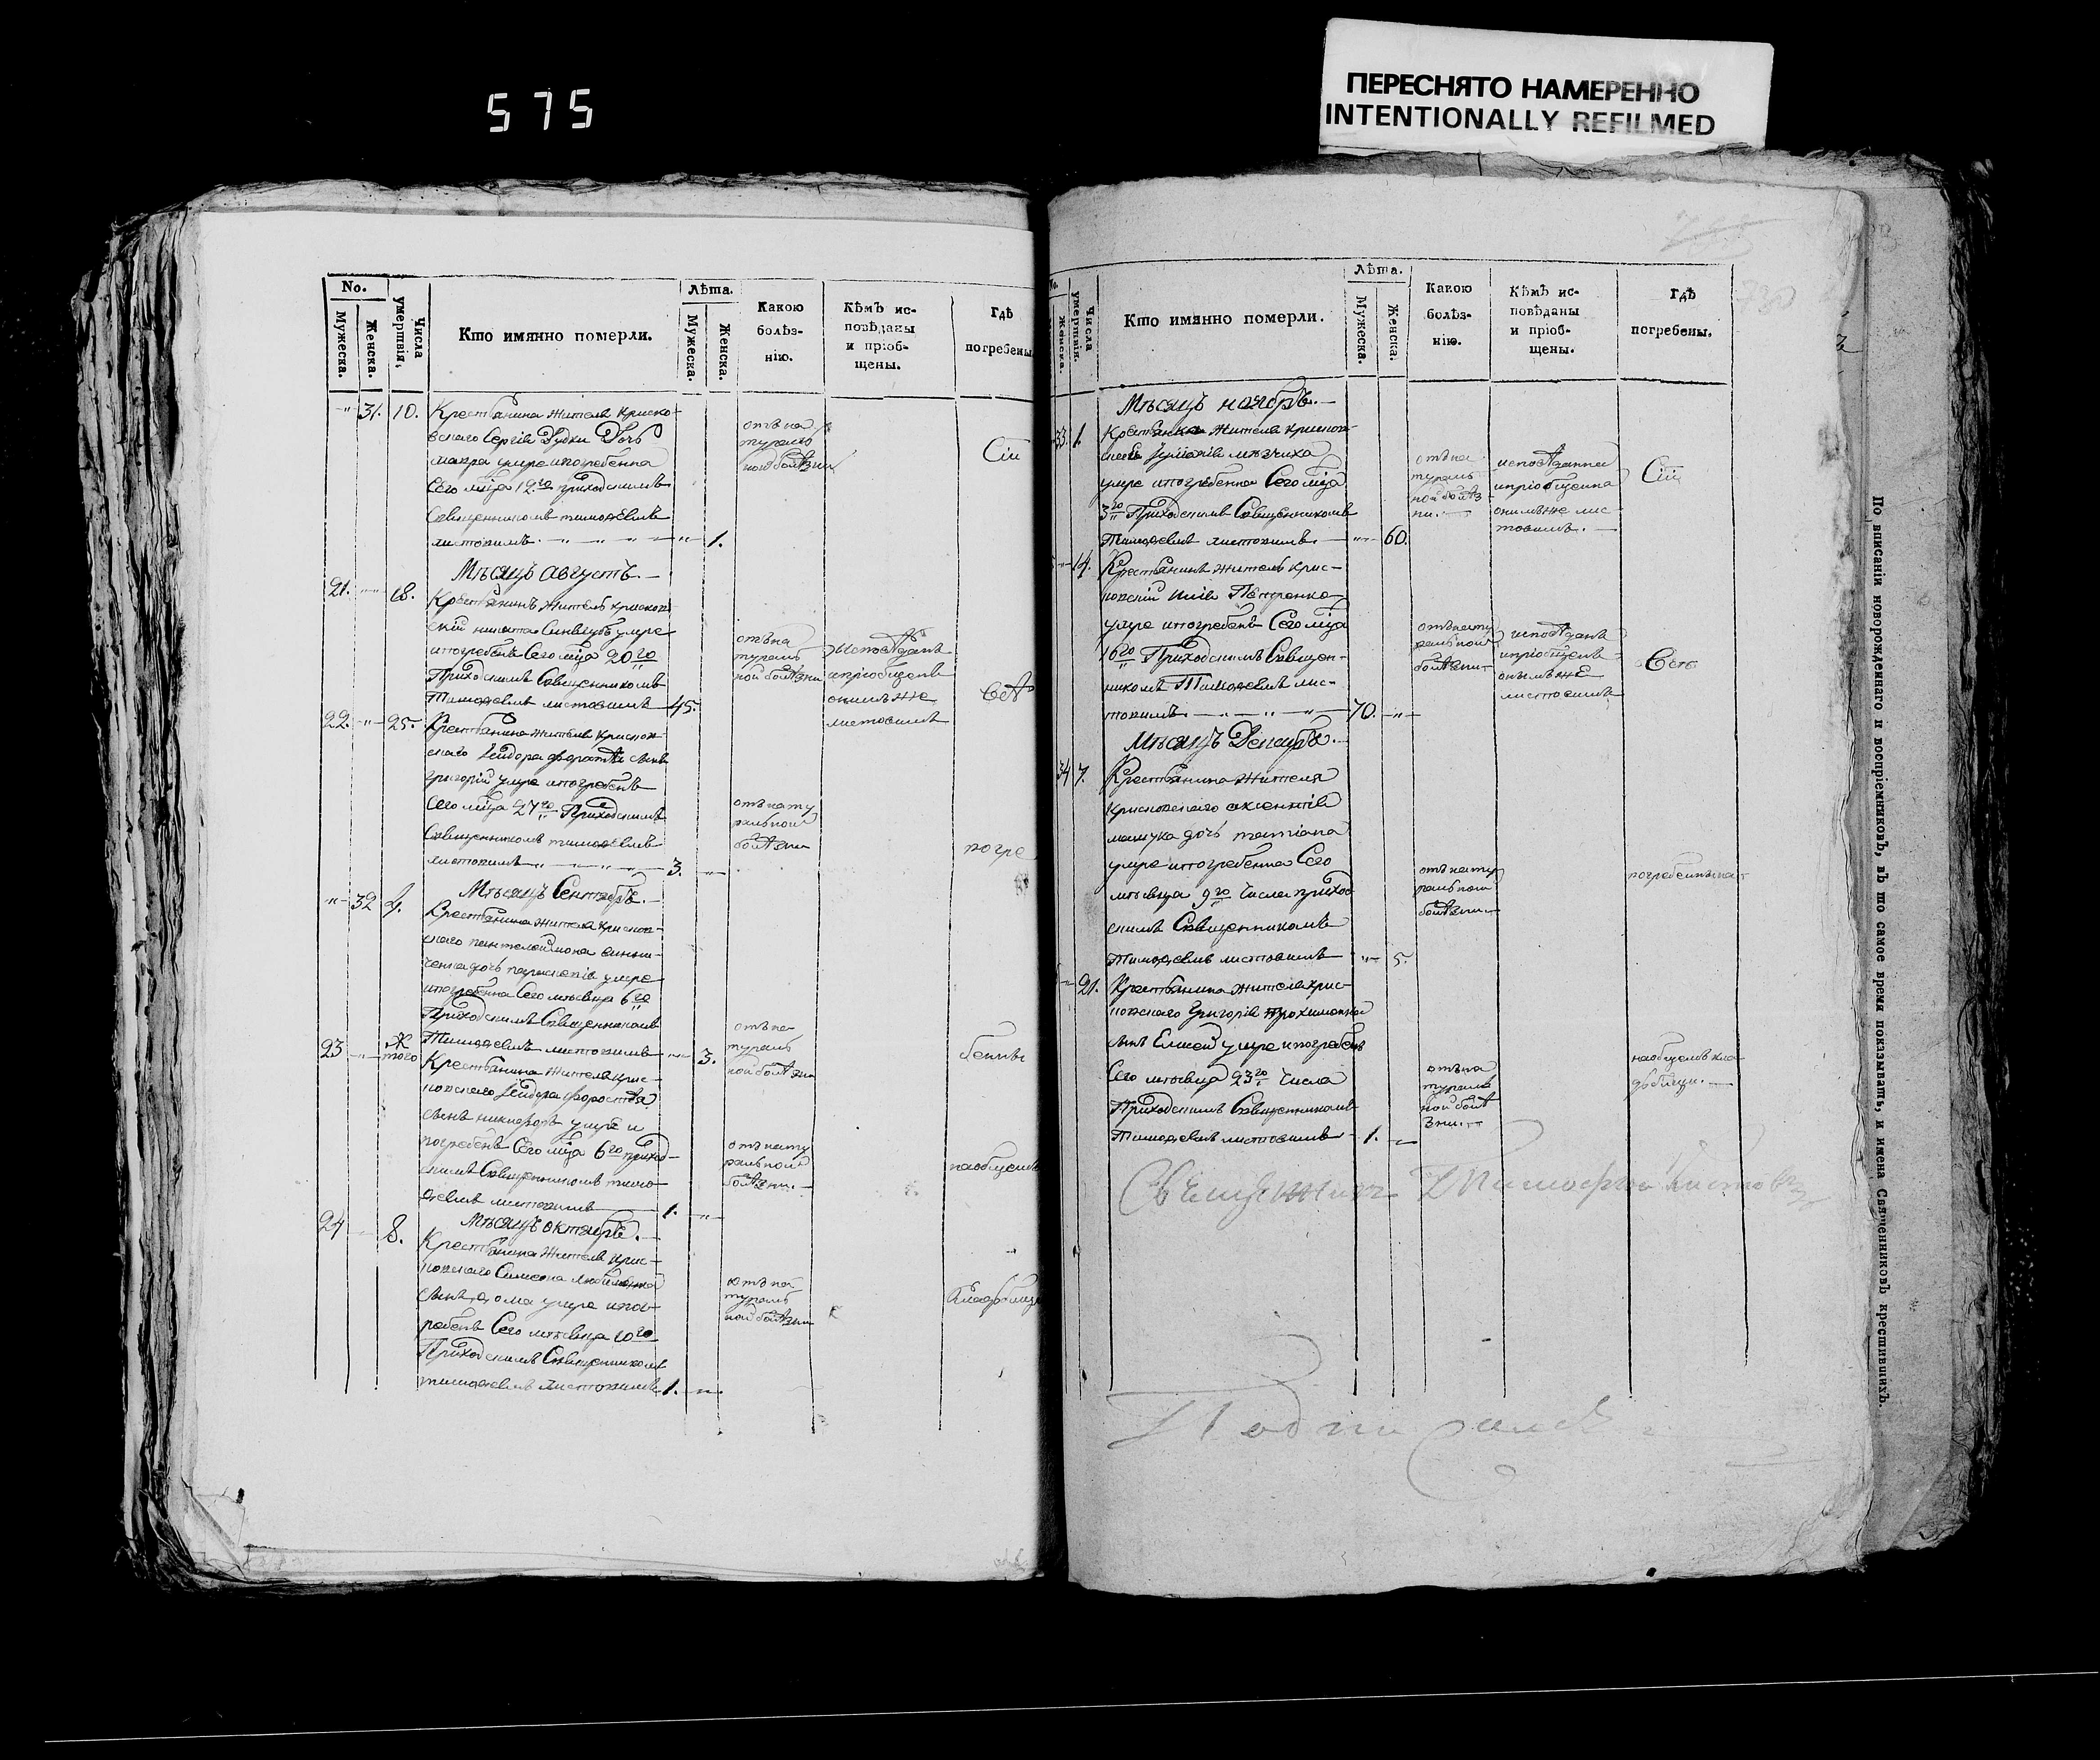 575
ПЕРЕСНЯТО НАМЕРЕННО
INTENTIONALLY REFILMED
No.
Мужеска.
Женска.
Числа умертвія.
Кто имянно померли.
Лѣта.
Мужеска.
Женска.
Какою
болѣз-
нію.
Кѣмъ ис-
повѣданы
и пріоб-
щены.
Гдѣ
погребены.
31. 10.
Крестьянина жителя криско-
вскаго Сергія Дудки Дочь
умре и погребенна
Сего мца 12го приходскимъ
Священникомъ тимоѳеемъ
листовимъ. 1.
отъ на
тураль
ной болѣзни
Сіи
Мѣсяцъ августъ.
21. 18.
Крестьянинъ житель крисков-
скій умре
и погребенъ Сего мца 20го
Приходскимъ Священникомъ
Тимоѳеемъ листовимъ 45.
отъ на
тураль
ной болѣзни
исповѣданъ
и пріобщенъ
онимъ же
листовимъ
всѣ
22. 25.
Крестьянина жителя крисков-
скаго сынъ
григорій умре и погребенъ
Сего мца 27го Приходскимъ
Священникомъ тимоѳеемъ
листовимъ 3.
отъ нату
ральной
болѣзни
погре
Мѣсяцъ Сентябрь.
32 4.
Крестьянина жителя крисков-
скаго пантелеимона
дочь параскевія умре
и погребенна Сего мѣсяца 6го
Приходскимъ Священникомъ
Тимоѳеемъ листовимъ 3.
отъ на
тураль
ной болѣзни
бенны
23 Ж
того
Крестьянина жителя крис-
ковскаго
сынъ никифоръ умре и
погребенъ Сего мца 6го приход-
скимъ Священникомъ тимо-
ѳеемъ листовимъ 1.
отъ нату
ральной
болѣзни.
наобщемъ
Мѣсяцъ октябрь.
24 8.
Крестьянина жителя крис-
ковскаго Симеона
сынъ ѳома умре и пог-
ребенъ Сего мѣсяца 10го
Приходскимъ Священникомъ
тимоѳеемъ листовимъ 1.
отъ на
тураль
ной болѣзни
кладбищѣ
No.
Женска.
Числа умертвія.
Кто имянно померли.
Лѣта.
Мужеска.
Женска.
Какою
болѣз-
нію.
Кѣмъ ис-
повѣданы
и пріоб-
щены.
Гдѣ
погребены.
Мѣсяцъ ноябрь.
33. 1.
Крестьянка жителя крисков-
умре и погребенна Сего мца
3го Приходскимъ Священникомъ
Тимоѳеемъ листовимъ. 60.
отъ на
тураль
ной болѣз
ни.
исповѣданна
и пріобщенна
онимъ же лис-
товимъ.
Сіи
14.
Крестьянинъ житель крис-
ковскій Илія Петренко
умре и погребенъ Сего мца
16го Приходскимъ Священ-
никомъ Тимоѳеемъ лис-
товимъ. 70.
отъ нату
ральной
болѣзни
исповѣданъ
и пріобщенъ
онымъ же
листовимъ
Всѣ
Мѣсяцъ Декабрь.
34 7.
Крестьянина жителя
крисковскаго
дочь татіана
умре и погребенна Сего
мѣсяца 9го Числа приход
скимъ Священникомъ
Тимоѳеемъ листовимъ 5.
отъ нату
ральной
болѣзни
погребенны на
21.
Крестьянина жителя крис-
ковскаго Григорія
сынъ Елисей умре и погребенъ
Сего мѣсяца 23го Числа
Приходскимъ Священникомъ
Тимоѳеемъ листовимъ 1.
отъ на
тураль
ной болѣ
зни.
наобщемъ кла-
дбищи.
Священникъ Тимофей Листовъ
Подписался
По вписаніи новорожденнаго и воспріемниковъ, въ то самое время показывать, и имена Священниковъ крестившихъ.